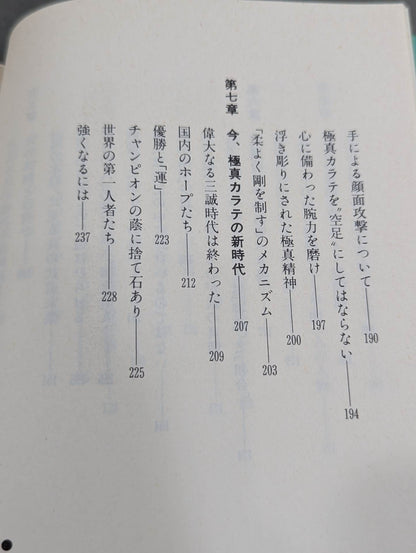 手による顔面攻撃について――190
極真カラテを〝空足〟にしてはならない――194
心に備わった腕力を磨け――197
浮き彫りにされた極真精神――200
「柔よく剛を制す」のメカニズム――203
第七章 今、極真カラテの新時代――207
偉大なる三誠時代は終わった――209
国内のホープたち――212
優勝と「運」――223
チャンピオンの蔭に捨て石あり――225
世界の第一人者たち――228
強くなるには――237